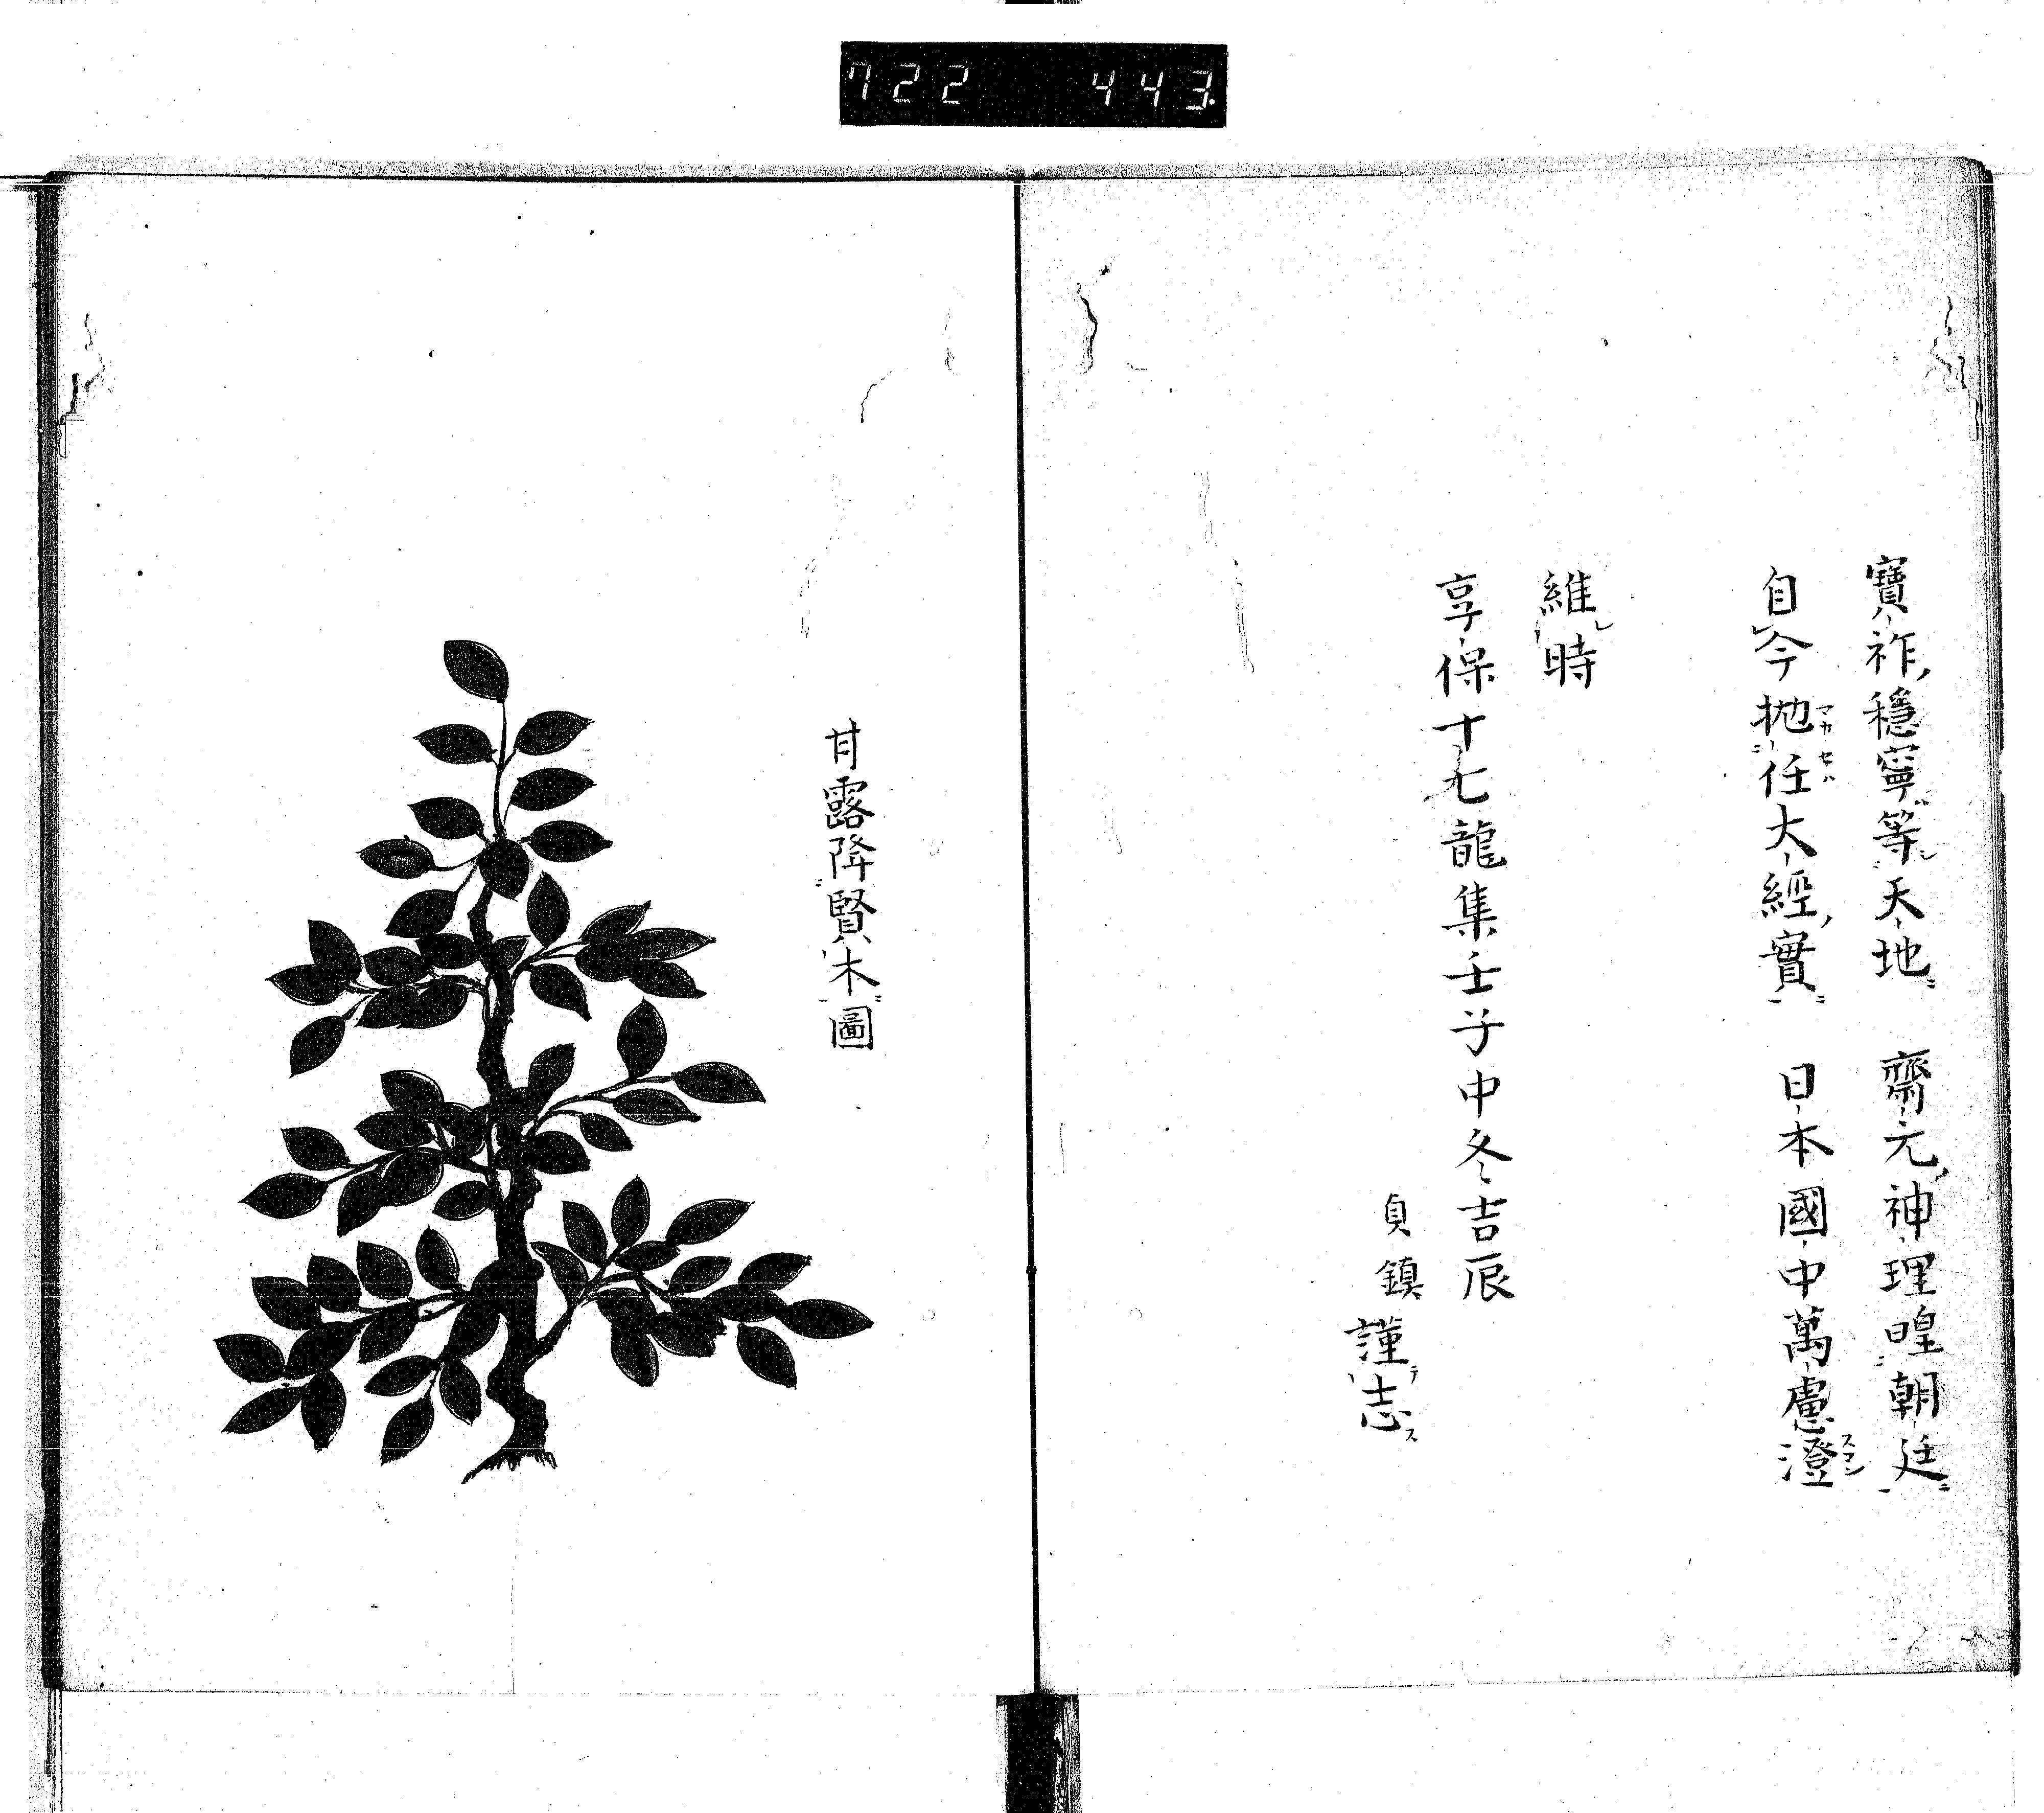 722 443
寶祚穩寧等天地 齋元神理皥朝廷
自今拋任大經實 日本國中萬慮澄
維時
享保十七龍集壬子中冬吉辰
貞鎮謹志
甘露降賢木圖